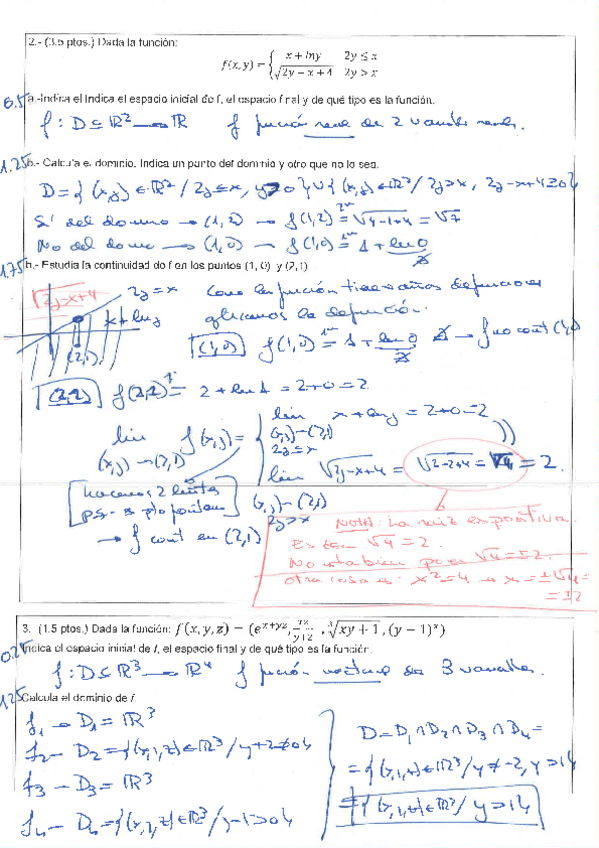 2.- (3.5 ptos.) Dada la función:
f(x,y) = { x + lny 2y ≤ x
√2y − x + 4 2y > x
0.5 a.-Indica el Indica el espacio inicial de f, el espacio final y de qué tipo es la función.
f : D ⊆ ℝ² → ℝ f función real de 2 variables reales.
1.25 b.- Calcula el dominio. Indica un punto del dominio y otro que no lo sea.
D = { (x,y) ∈ ℝ² / 2y ≤ x, y > 0 } ∪ { (x,y) ∈ ℝ² / 2y > x, 2y-x+4 ≥ 0 }
Sí del dominio → (1,2) → f(1,2) = √4-1+4 = √7
No del dominio → (1,0) → f(1,0) = 1 + ln 0
1.75 h.- Estudia la continuidad de f en los puntos (1, 0) y (2,1)
√2y-x+4 2y = x Como la función tiene varias definiciones
x + ln y aplicamos la definición.
(2,1) (1,0) f(1,0) = 1 + ln 0 ∄ → f no cont (1,0)
(2,1) f(2,1) = 2 + ln 1 = 2+0 = 2
lim x + ln y = 2+0 = 2
(x,y)→(2,1)
2y≤x
lim f(x,y) =
(x,y)→(2,1)
lim √2y-x+4 = √2-2+4 = √4 = 2.
(x,y)→(2,1)
2y>x
hacemos 2 límites
→ f cont en (2,1)
NOTA: La raíz es positiva.
Es decir √4 = 2.
No está bien poner √4 = ±2.
otra cosa es: x² = 4 → x = ±√4 =
= ±2
3. (1.5 ptos.) Dada la función: f(x, y, z) = (e^(x+yz), zx/(y+2), ∛xy + 1, (y − 1)^x)
0.25 Indica el espacio inicial de f, el espacio final y de qué tipo es la función.
f : D ⊆ ℝ³ → ℝ⁴ f función vectorial de 3 variables.
1.25 Calcula el dominio de f.
f₁ → D₁ = ℝ³
f₂ → D₂ = { (x,y,z) ∈ ℝ³ / y+2 ≠ 0 }
f₃ → D₃ = ℝ³
f₄ → D₄ = { (x,y,z) ∈ ℝ³ / y-1 > 0 }
D = D₁ ∩ D₂ ∩ D₃ ∩ D₄ =
= { (x,y,z) ∈ ℝ³ / y ≠ -2, y > 1 }
= { (x,y,z) ∈ ℝ³ / y > 1 }